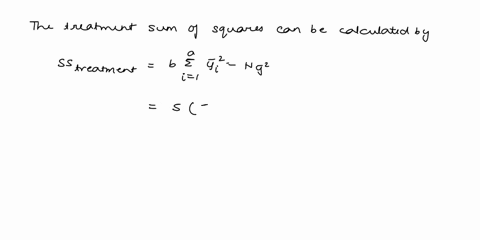 The treatment sum of squares can be calculated by
SS treatment = b a Σ i=1 ȳi² - Ng²
= 5 ( -